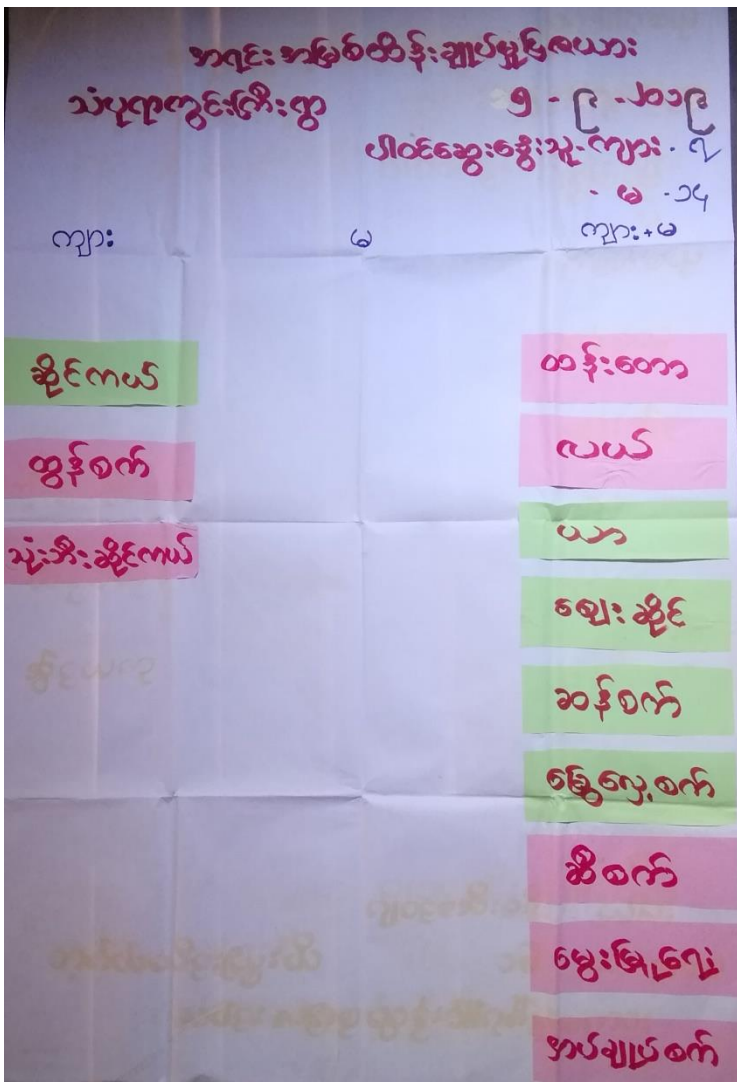 အရင်းအမြစ်ထိန်းချုပ်မှုပြဇယား
သံပုရာကွင်းကြီးရွာ ၅-၉-၂၀၁၉
ပါဝင်ဆွေးနွေးသူ-ကျား-၇
-မ-၁၄
ကျား မ ကျား+မ
ဆိုင်ကယ် ထန်းတော
ထွန်စက် လယ်
သုံးဘီးဆိုင်ကယ် ယာ
ဈေးဆိုင်
ဆန်စက်
မြွေလှေ့စက်
ဆီစက်
မွေးမြူရေး
အပ်ချုပ်စက်